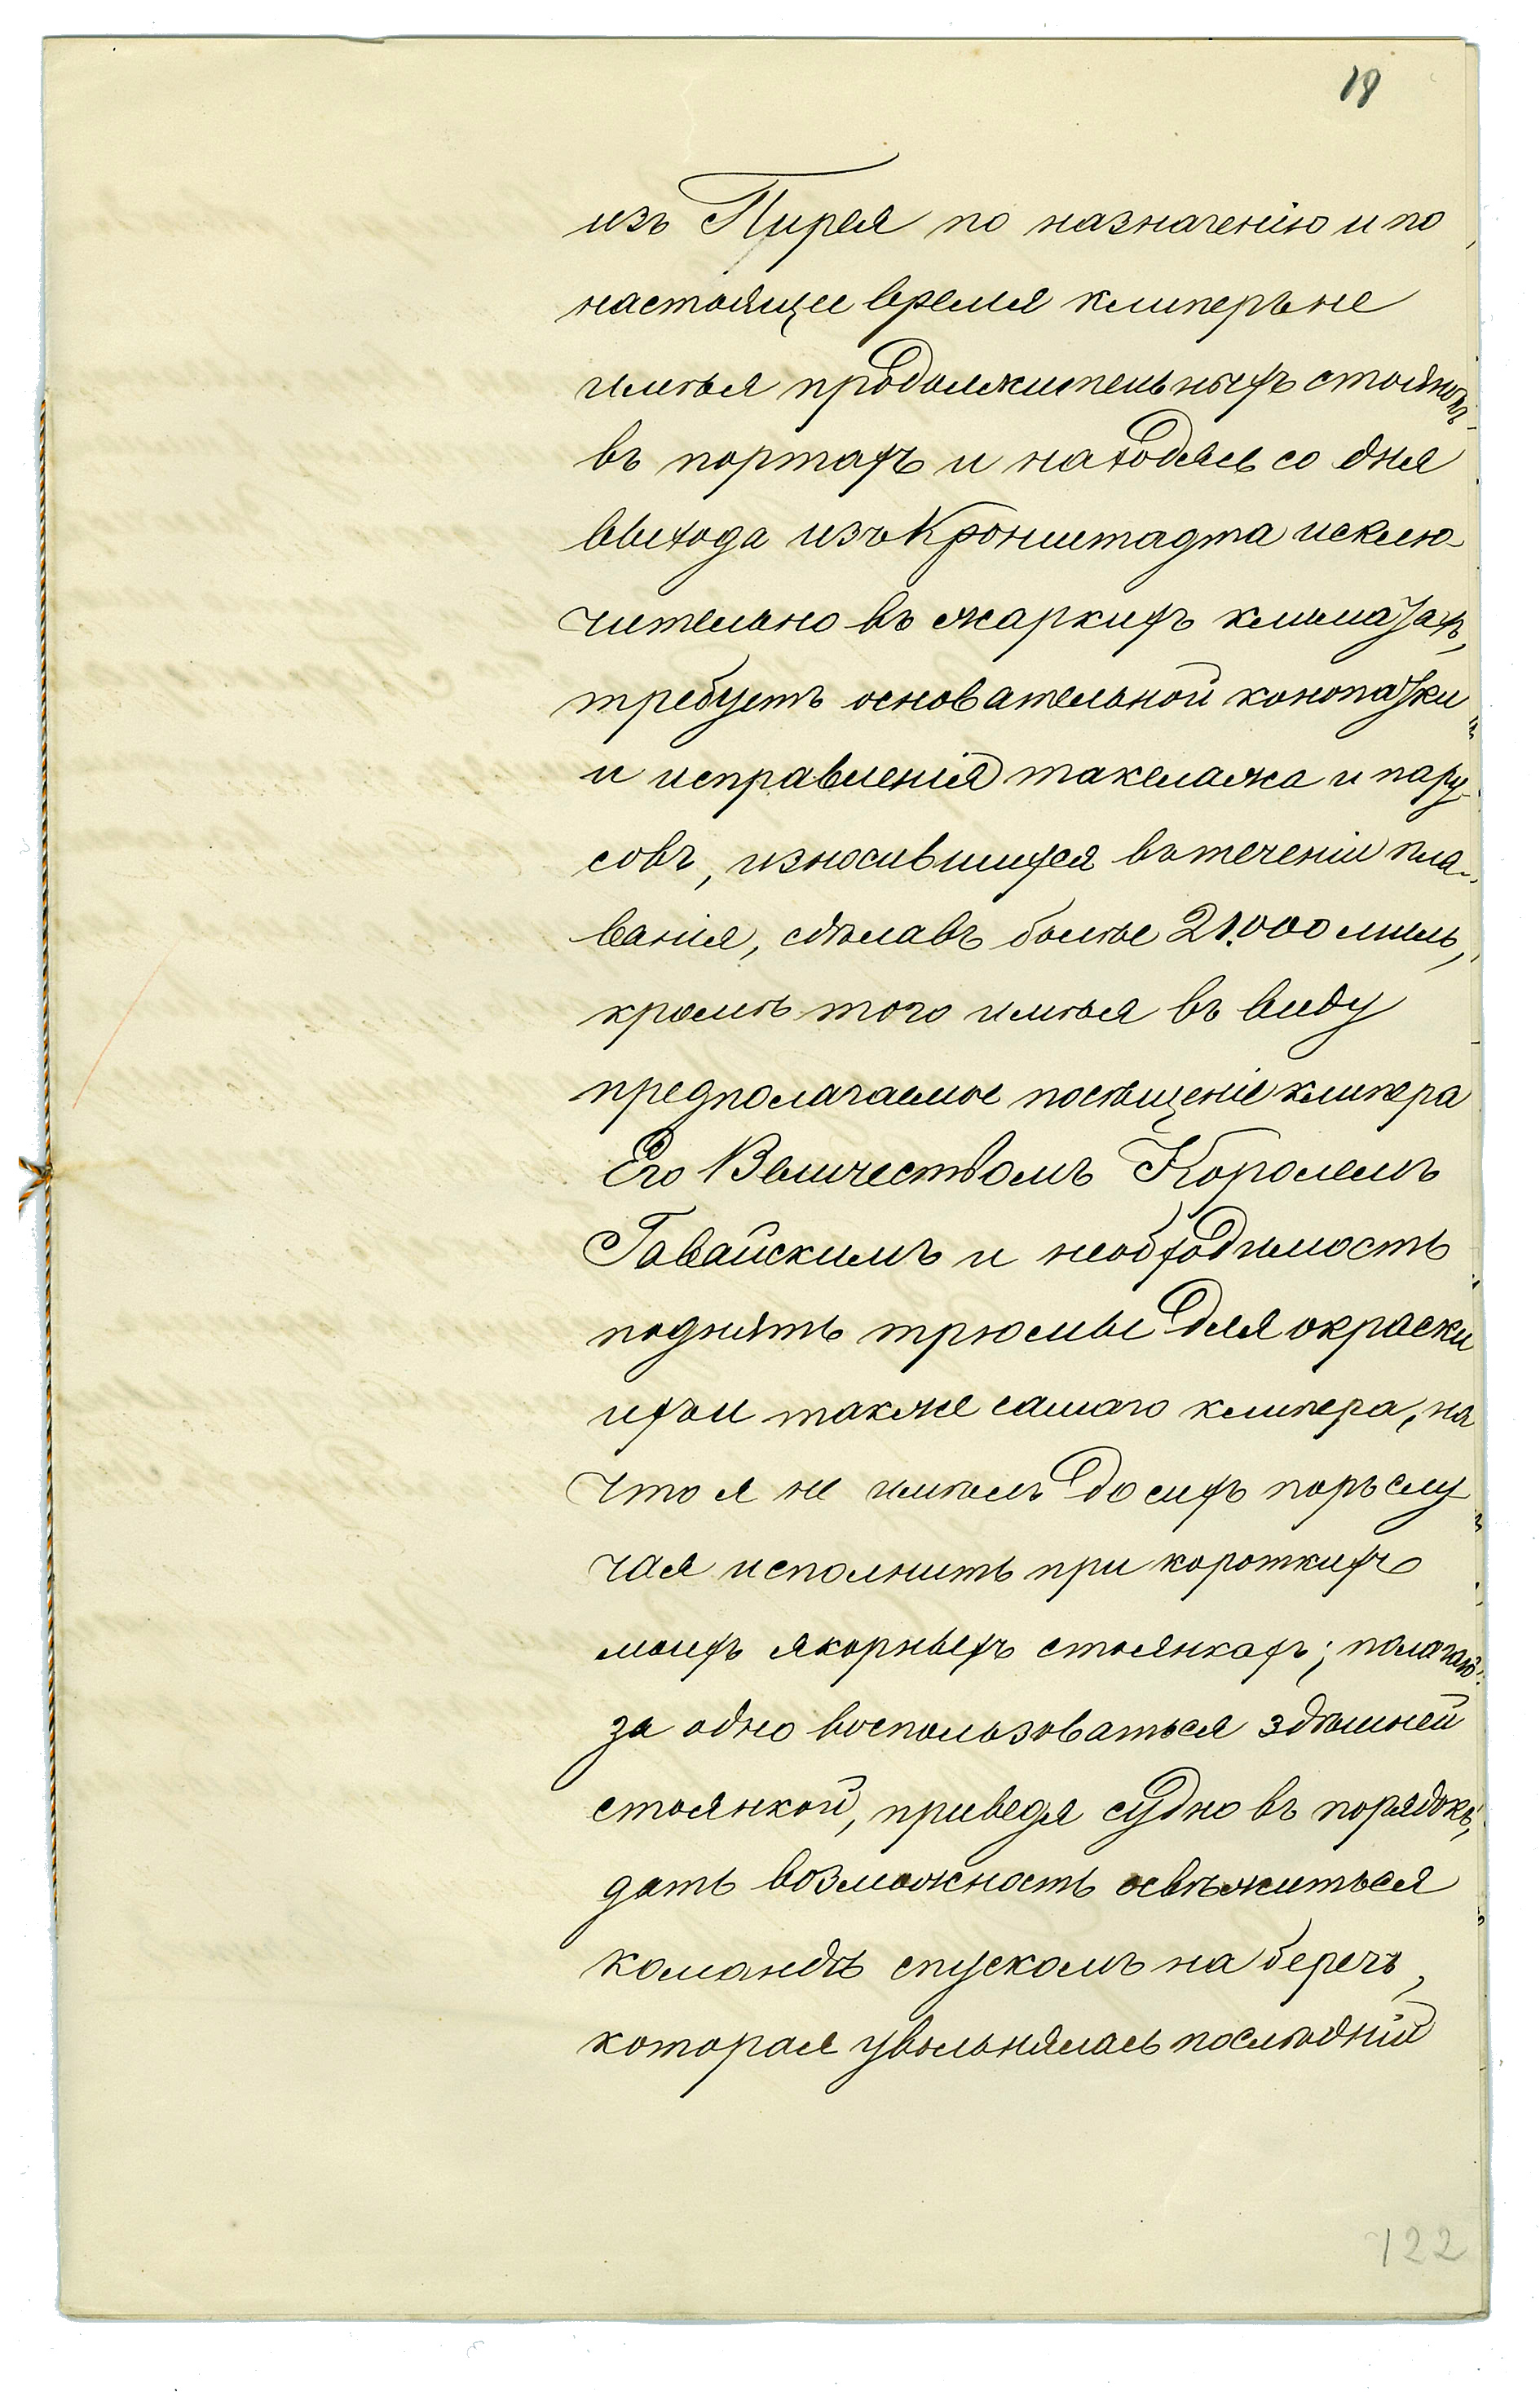 18
изъ Пирея по назначенію и по
настоящее время клиперъ не
имѣя продолжительныхъ стоянокъ
въ портахъ и находясь со дня
выхода изъ Кронштадта исклю-
чительно въ жаркихъ климатахъ,
требуетъ основательной конопатки
и исправленія такелажа и пару-
совъ, износившихся въ теченіи пла-
ванія, сдѣлавъ болѣе 21.000 миль,
кромѣ того имѣя въ виду
предполагаемое посѣщеніе клипера
Его Величествомъ Королемъ
Гавайскимъ и необходимость
поднять трюмы для окраски
ихъ и также самаго клипера, на
что я не имѣлъ до сихъ поръ слу
чая исполнить при короткихъ
моихъ якорныхъ стоянкахъ; полагаю
за одно воспользоваться здѣшней
стоянкой, приведя судно въ порядокъ,
дать возможность освѣжиться
командѣ спускомъ на берегъ,
которая увольнялась послѣдній
122